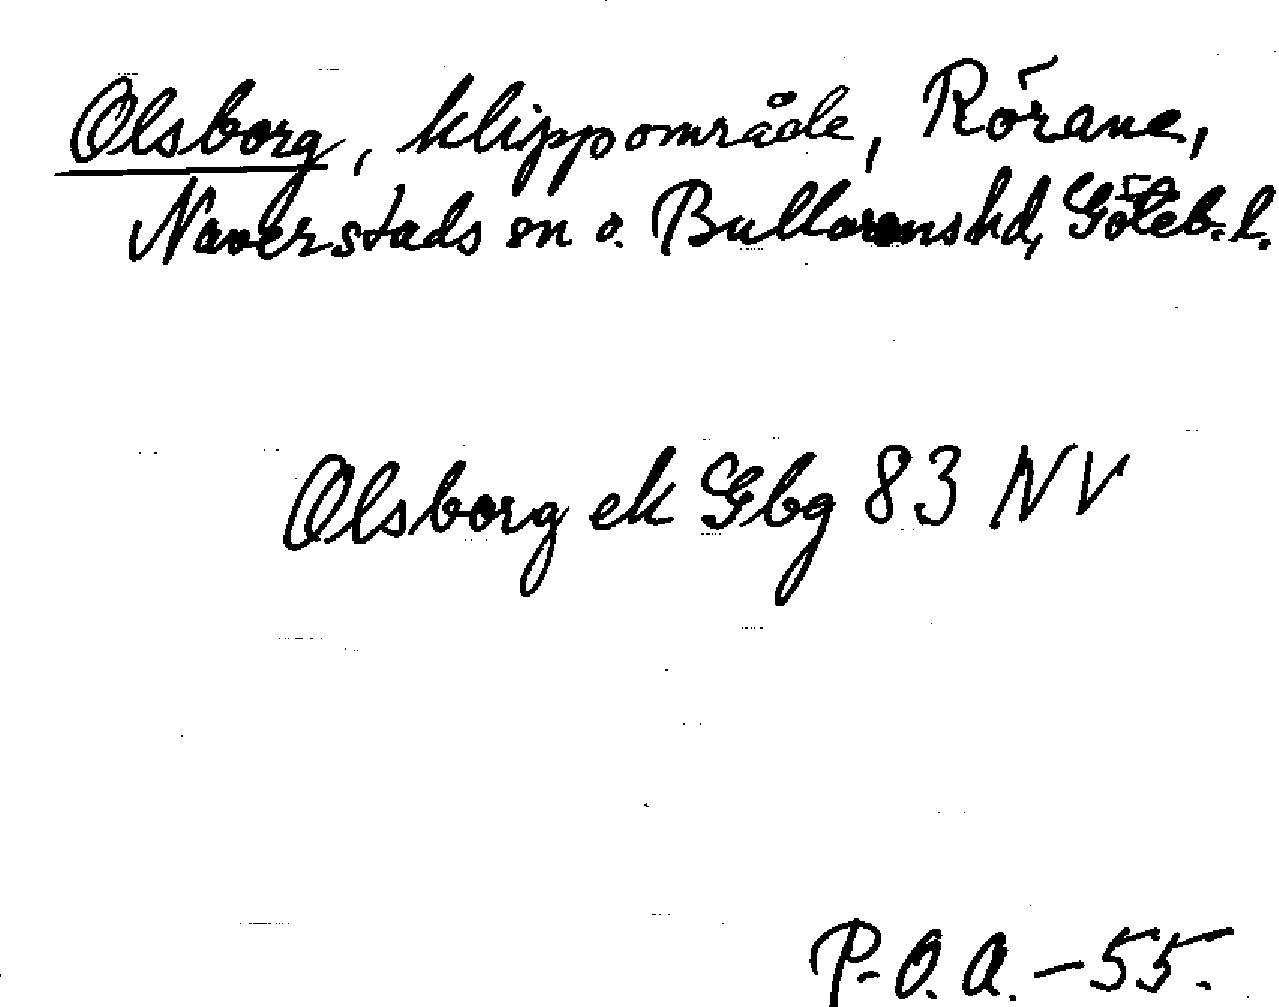 Olsborg, klippområde, Rörane,
Naverstads sn o. Bullarens hd, Göteb. l.
Olsborg ek Gbg 83 NV
P.O.A. - 55.